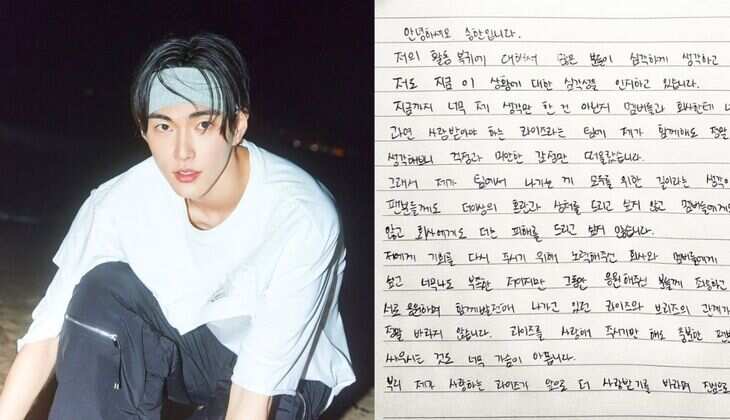 안녕하세요 승한입니다.
저의 활동 복귀에 대해서 많은 분들이 심각하게 생각하고
저도 지금 이 상황에 대한 심각성을 인지하고 있습니다.
지금까지 너무 제 생각만 한 건 아닌지 멤버들과 회사한테
과연 사랑받아야 하는 라이즈라는 팀에 제가 함께해도 정말
생각해보니 걱정과 미안한 감정만 떠올랐습니다.
그래서 제가 팀에서 나가는 게 모두를 위한 길이라는 생각이
팬분들께도 더이상의 혼란과 상처를 드리고 싶지 않고 멤버들에게도
않고 회사에게도 더는 피해를 드리고 싶지 않습니다.
저에게 기회를 다시 주시기 위해 노력해주신 회사와 멤버들에게
싶고 너무나도 부족한 저이지만 그동안 응원해주신 분들께 죄송하고
서로 응원하며 함께 발전해 나가고 있던 라이즈와 브리즈의 관계가
정말 바라지 않습니다. 라이즈를 사랑해 주시기만 해도 충분한 팬
싸우시는 것도 너무 가슴이 아픕니다.
부디 제가 사랑하는 라이즈가 앞으로 더 사랑받기를 바라며 진심으로